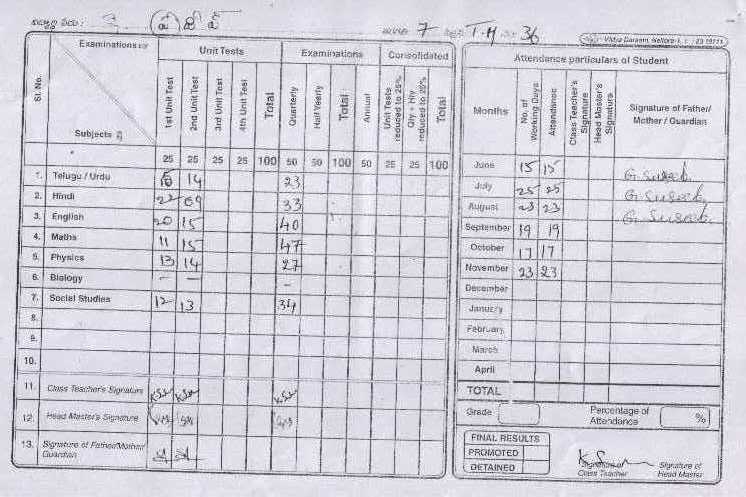 7 T.M 36
Vidya Daraam, Nellore
Examinations
Unit Tests
Examinations
Consolidated
Sl. No.
Subjects
1st Unit Test
2nd Unit Test
3rd Unit Test
4th Unit Test
Total
Quarterly
Half Yearly
Total
Annual
Unit Tests reduced to 25%
Qly + Hly reduced to 25%
Total
25 25 25 25 100 50 50 100 50 25 25 100
1. Telugu / Urdu 14 23
2. Hindi 22 09 33
3. English 20 15 40
4. Maths 11 15 47
5. Physics 13 14 27
6. Biology - - -
7. Social Studies 12 13 34
8.
9.
10.
11. Class Teacher's Signature
12. Head Master's Signature
13. Signature of Father/Mother/ Guardian
Attendance particulars of Student
Months
No. of Working Days
Attendance
Class Teacher's Signature
Head Master's Signature
Signature of Father/ Mother / Guardian
June 15 15
July 25 25
August 23 23
September 19 19
October 17 17
November 23 23
December
January
February
March
April
TOTAL
Grade
Percentage of Attendance %
FINAL RESULTS
PROMOTED
DETAINED
Signature of Class Teacher
Signature of Head Master